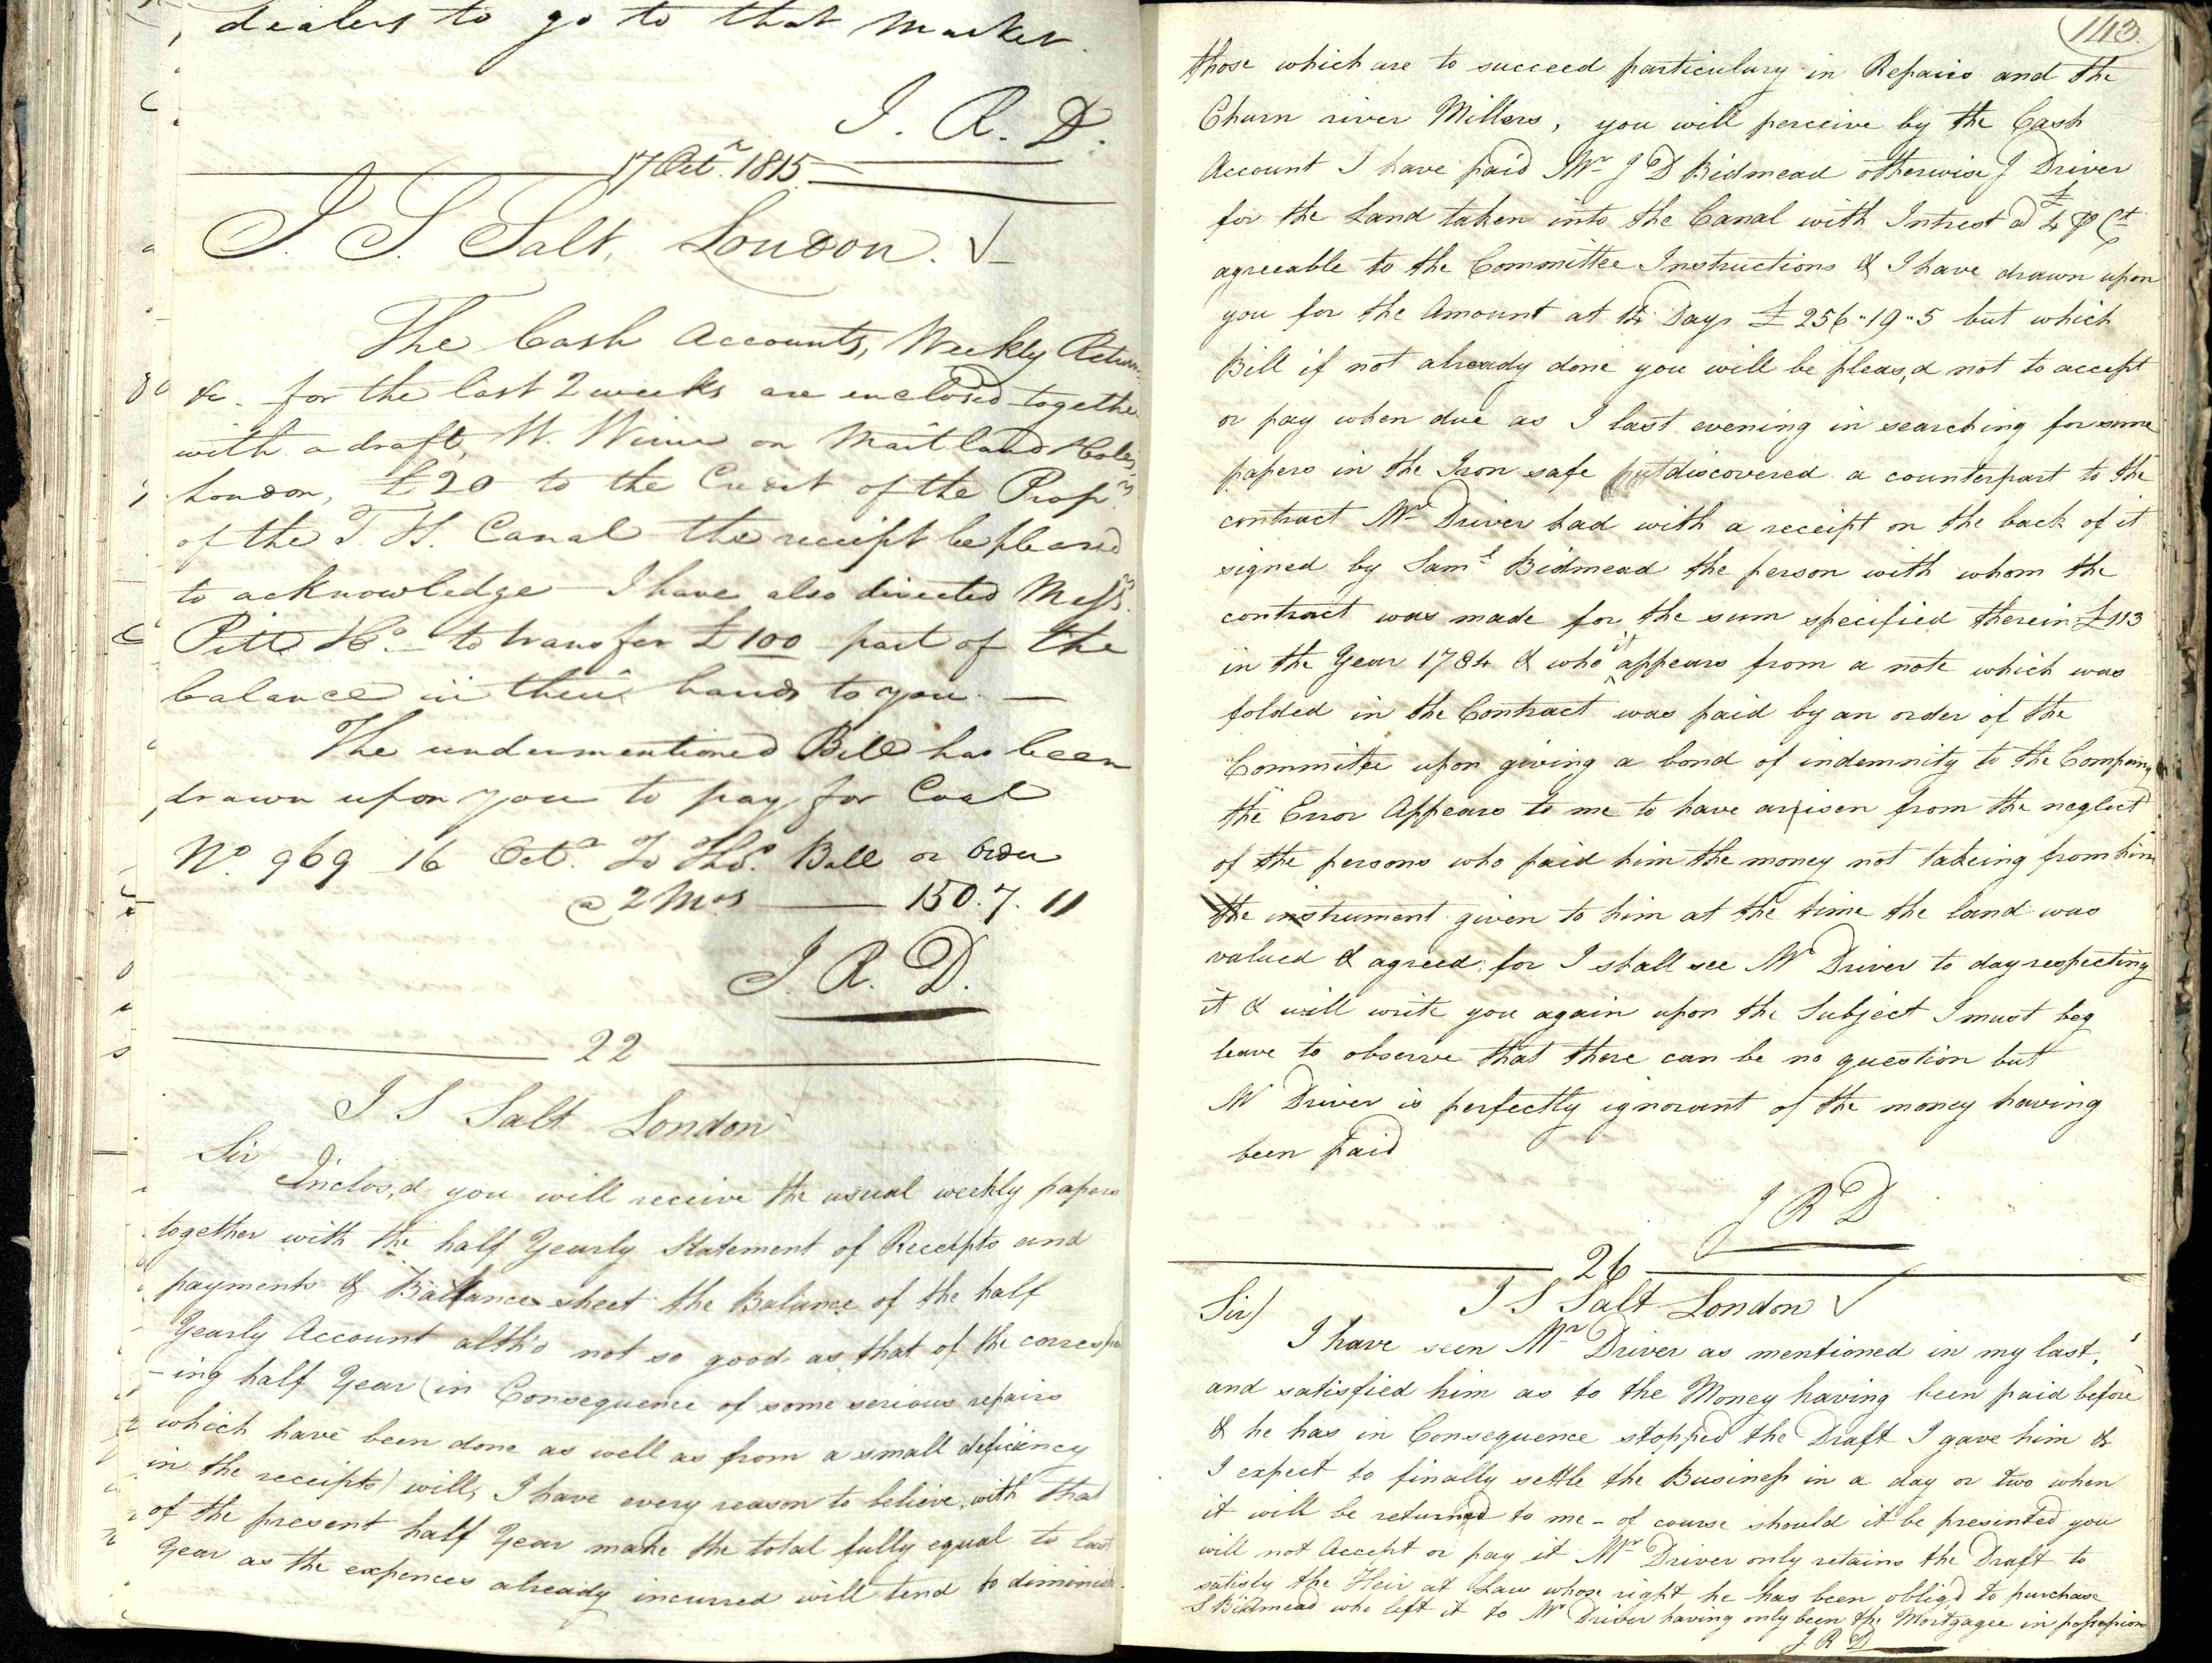 dealers to go to that Market.
I. R. D.
17 Octr. 1815
I. S. Salt, London. √
The Cash Accounts, Weekly Return
&c. for the last 2 weeks are enclosed together
with a draft, W. on Maitland & Coles,
London, £20 to the Credit of the Proprs.
of the T. & S. Canal the receipt be pleased
to acknowledge – I have also directed Messrs.
Pitt & Co. to transfer £100 part of the
balance in their hands to you. —
The undermentioned Bill has been
drawn upon you to pay for Coal
No. 969 16 Octr. To Thos. Ball or Order
@ 2 Mos — 150. 7. 11
I. R. D.
22
I S Salt London
Sir
Inclos,d you will receive the usual weekly papers
together with the half Yearly Statement of Receipts and
payments & Ballance sheet the Balance of the half
Yearly Account altho not so good as that of the correspon
-ing half Year (in Consequence of some serious repairs
which have been done as well as from a small deficiency
in the receipts) will, I have every reason to believe, with that
of the present half Year make the total fully equal to last
Year as the expences already incurred will tend to diminish
143.
those which are to succeed particulary in Repairs and the
Churn river Millers, you will perceive by the Cash
Account I have paid Mr J D Bidmead otherwise J Driver
for the Land taken into the Canal with Intrest a £4 P Ct
agreeable to the Committee Instructions & I have drawn upon
you for the Amount at 14 Days £256"19"5 but which
Bill if not already done you will be pleas,d not to accept
or pay when due as I last evening in searching for some
papers in the Iron safe discovered a counterpart to the
contract Mr Driver had with a receipt on the back of it
signed by Saml Bidmead the person with whom the
contract was made for the sum specified therein £113
in the Year 1784 & who it appears from a note which was
folded in the Contract was paid by an order of the
Committee upon giving a bond of indemnity to the Company
the Error Appears to me to have arisen from the neglect
of the persons who paid him the money not takeing from him
the instrument given to him at the time the land was
valued & agreed for I shall see Mr Driver to day respecting
it & will write you again upon the Subject I must beg
leave to observe that there can be no question but
Mr Driver is perfectly ignorant of the money having
been paid
J R D
26
I S Salt London √
Sir)
I have seen Mr Driver as mentioned in my last,
and satisfied him as to the Money having been paid before
& he has in Consequence stopped the Draft I gave him &
I expect to finally settle the Business in a day or two when
it will be returned to me – of course should it be presented you
will not Accept or pay it Mr Driver only retains the Draft to
satisfy the Heir at Law whose right he has been oblig'd to purchase
S Bidmead who left it to Mr Driver having only been the Mortgagee in possession
J R D